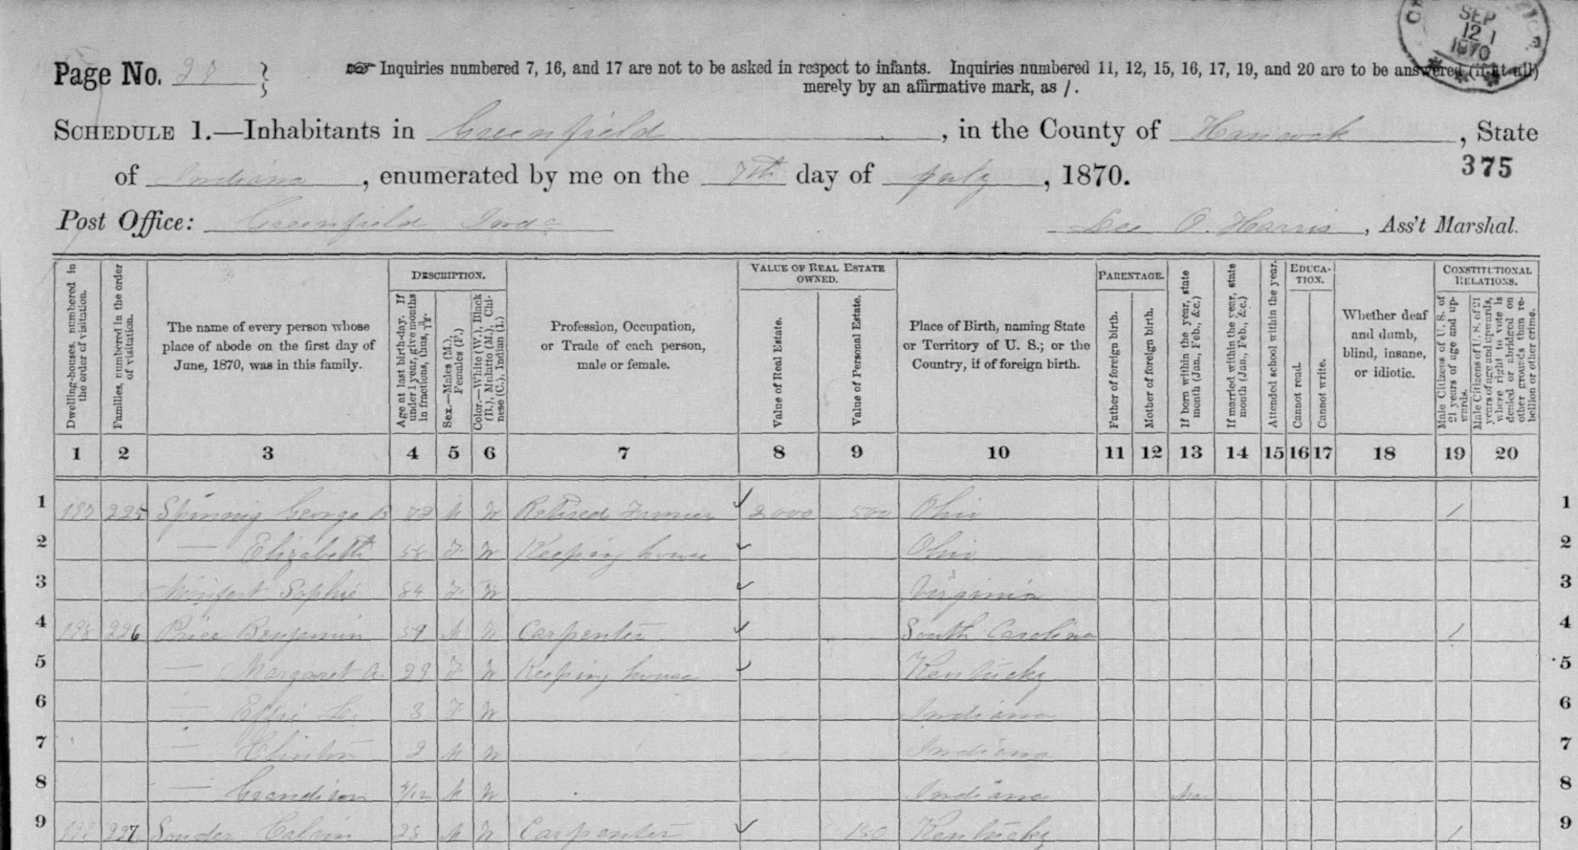 SEP 12 1870
Page No. 28
Inquiries numbered 7, 16, and 17 are not to be asked in respect to infants. Inquiries numbered 11, 12, 15, 16, 17, 19, and 20 are to be answered (if at all)
merely by an affirmative mark, as /.
SCHEDULE 1.—Inhabitants in Greenfield, in the County of Hancock, State
of Indiana, enumerated by me on the 7th day of July, 1870.
375
Post Office: Greenfield Inda
Lee O. Harris, Ass't Marshal.
Dwelling-houses, numbered in the order of visitation.
Families, numbered in the order of visitation.
The name of every person whose place of abode on the first day of June, 1870, was in this family.
DESCRIPTION.
Age at last birth-day. If under 1 year, give months in fractions, thus, 3/12.
Sex.—Males (M.), Females (F.)
Color.—White (W.), Black (B.), Mulatto (M.), Chinese (C.), Indian (I.)
Profession, Occupation, or Trade of each person, male or female.
VALUE OF REAL ESTATE OWNED.
Value of Real Estate.
Value of Personal Estate.
Place of Birth, naming State or Territory of U. S.; or the Country, if of foreign birth.
PARENTAGE.
Father of foreign birth.
Mother of foreign birth.
If born within the year, state month (Jan., Feb., &c.)
If married within the year, state month (Jan., Feb., &c.)
Attended school within the year.
EDUCATION.
Cannot read.
Cannot write.
Whether deaf and dumb, blind, insane, or idiotic.
CONSTITUTIONAL RELATIONS.
Male Citizens of U. S. of 21 years of age and upwards.
Male Citizens of U. S. of 21 years of age and upwards, where right to vote is denied or abridged on other grounds than rebellion or other crime.
1 2 3 4 5 6 7 8 9 10 11 12 13 14 15 16 17 18 19 20
1 225 George B M W Retired Farmer ✓ 2000 500 Ohio / 1
2 — Elizabeth F W Keeping house ✓ Ohio 2
3 Sophie 84 F W ✓ Virginia 3
4 198 226 Price Benjamin 59 M W Carpenter ✓ South Carolina / 4
5 — Margaret A. 29 F W Keeping house ✓ Kentucky 5
6 — Effie 3 F W Indiana 6
7 — Clinton 2 M W Indiana 7
8 — Grandison M W Indiana 8
9 227 Souder Calvin M W Carpenter ✓ 150 Kentucky / 9